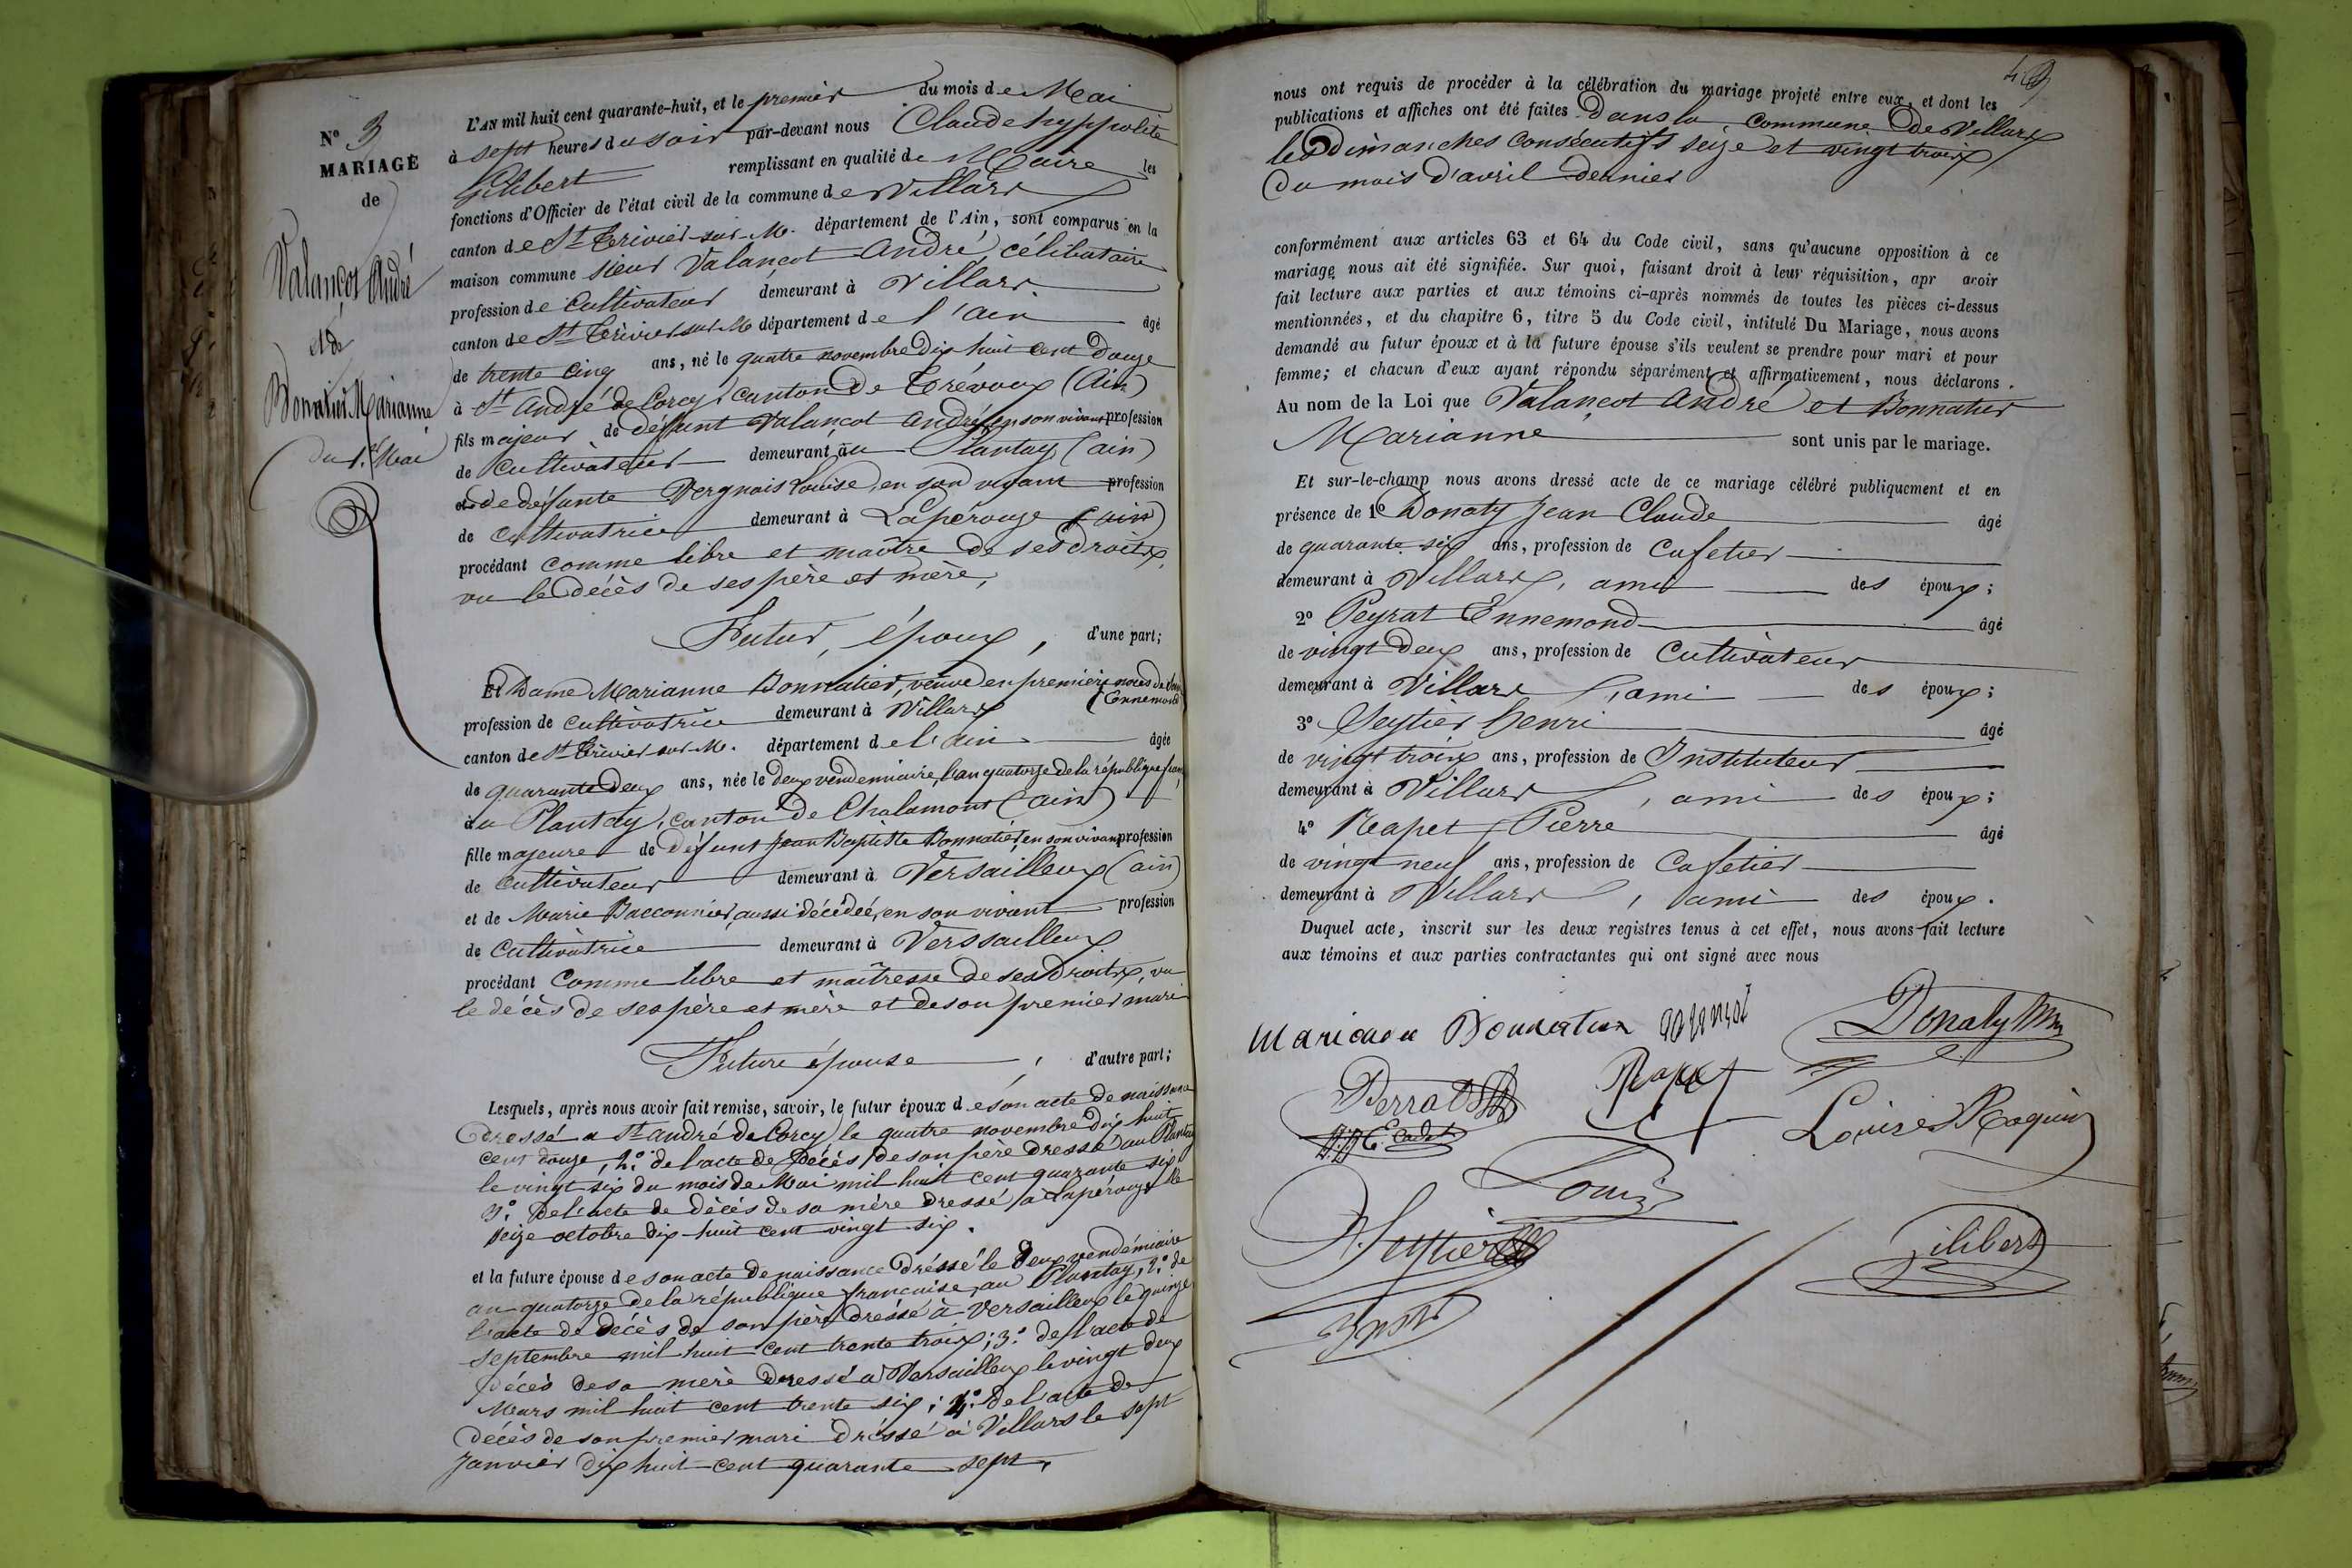 N° 3
MARIAGE
de
Valançot André
et de
Bonnatier Marianne
du 1.er Mai
L'AN mil huit cent quarante-huit, et le premier du mois de Mai
à sept heures du soir par-devant nous Claude hyppolite
Gilibert remplissant en qualité de Maire les
fonctions d'Officier de l'état civil de la commune de Villars
canton de St Trivier-sur-M. département de l'Ain, sont comparus en la
maison commune sieur Valançot André, célibataire
profession de Cultivateur demeurant à Villars
canton de St Trivier sur M. département de l'ain âgé
de trente cinq ans, né le quatre novembre dix huit cent douze
à St André de Corcy, canton de Trévoux (Ain)
fils majeur de défunt Valançot André, en son vivant profession
de Cultivateur demeurant au Plantay (ain)
et de défunte Vergnais Louise, en son vivant profession
de Cultivatrice demeurant à Lapérouze (ain)
procédant comme libre et maître de ses droits,
vu le décès de ses père et mère,
Futur époux, d'une part;
Et Dame Marianne Bonnatier, veuve en première noces de
Ennemond
profession de cultivatrice demeurant à Villars
canton de St Trivier-sur-M. département de l'ain âgée
de quarante deux ans, née le deux vendémiaire, l'an quatorze de la république
au Plantay, canton de Chalamont (ain)
fille majeure de défunt Jean Baptiste Bonnatier, en son vivant profession
de cultivateur demeurant à Versailleux (ain)
et de Marie Bacconnier, aussi décédée, en son vivant profession
de Cultivatrice demeurant à Verssailleux
procédant comme libre et maîtresse de ses Droits, vu
le décès de ses père et mère et de son premier mari
Future épouse, d'autre part;
Lesquels, après nous avoir fait remise, savoir, le futur époux de son acte de naissance
dressé à St André de Corcy, le quatre novembre dix huit
cent douze, 2.° de l'acte de Décès de son père dressé au Plantay
le vingt six du mois de Mai mil huit cent quarante six
3.° De l'acte de décès de sa mère dressé à Lapérouze le
seize octobre dix-huit cent vingt six.
et la future épouse de son acte de naissance dressé le deux vendémiaire
an quatorze de la république française, au Plantay, 2.° de
l'acte de décès de son père dressé à Versailleux le quinze
septembre mil huit cent trente trois; 3.° de l'acte de
décès de sa mère dressé à Versailleux le vingt deux
Mars mil huit cent trente six; 4.° de l'acte de
Décès de son premier mari dréssé à Villars le sept
Janvier dix huit cent quarante sept.
nous ont requis de procéder à la célébration du mariage projeté entre eux, et dont les
publications et affiches ont été faites Dans la commune de Villars
les dimanches consécutifs seize et vingt trois
Du mois d'avril dernier
conformément aux articles 63 et 64 du Code civil, sans qu'aucune opposition à ce
mariage nous ait été signifiée. Sur quoi, faisant droit à leur réquisition, apr avoir
fait lecture aux parties et aux témoins ci-après nommés de toutes les pièces ci-dessus
mentionnées, et du chapitre 6, titre 5 du Code civil, intitulé Du Mariage, nous avons
demandé au futur époux et à la future épouse s'ils veulent se prendre pour mari et pour
femme; et chacun d'eux ayant répondu séparément et affirmativement, nous déclarons
Au nom de la Loi que Valançot André et Bonnatier
Marianne sont unis par le mariage.
Et sur-le-champ nous avons dressé acte de ce mariage célébré publiquement et en
présence de 1° Donaty Jean Claude âgé
de quarante six ans, profession de Cafetier
demeurant à Villars, ami des époux;
2° Peyrat Ennemond âgé
de vingt deux ans, profession de Cultivateur
demeurant à Villars, ami des époux;
3° Seytier henri âgé
de vingt trois ans, profession de Instituteur
demeurant à Villars, ami des époux;
4° Reapet Pierre âgé
de vingt neuf ans, profession de Cafetier
demeurant à Villars, ami des époux.
Duquel acte, inscrit sur les deux registres tenus à cet effet, nous avons fait lecture
aux témoins et aux parties contractantes qui ont signé avec nous
Donaty
Perrat
Louise Roquin
Louis
Seytier
Gilibert